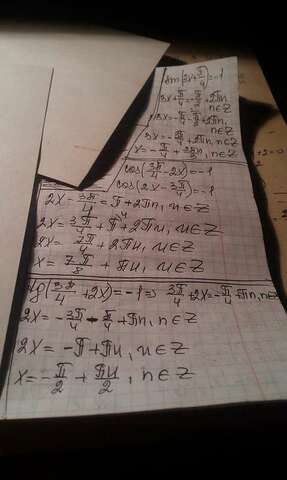 sin(3x+π/4)=-1
3x+π/4=-π/2+2πn, n∈Z
3x=-π/4-π/2+2πn, n∈Z
3x=-3π/4+2πn, n∈Z
x=-π/4+2πn/3, n∈Z
cos(3π/4-2x)=-1
cos(2x-3π/4)=-1
2x-3π/4=π+2πn, n∈Z
2x=3π/4+π+2πn, n∈Z
2x=7π/4+2πn, n∈Z
x=7π/8+πn, n∈Z
tg(3π/4+2x)=-1⇒3π/4+2x=-π/4+πn, n∈Z
2x=-3π/4-π/4+πn, n∈Z
2x=-π+πn, n∈Z
x=-π/2+πn/2, n∈Z